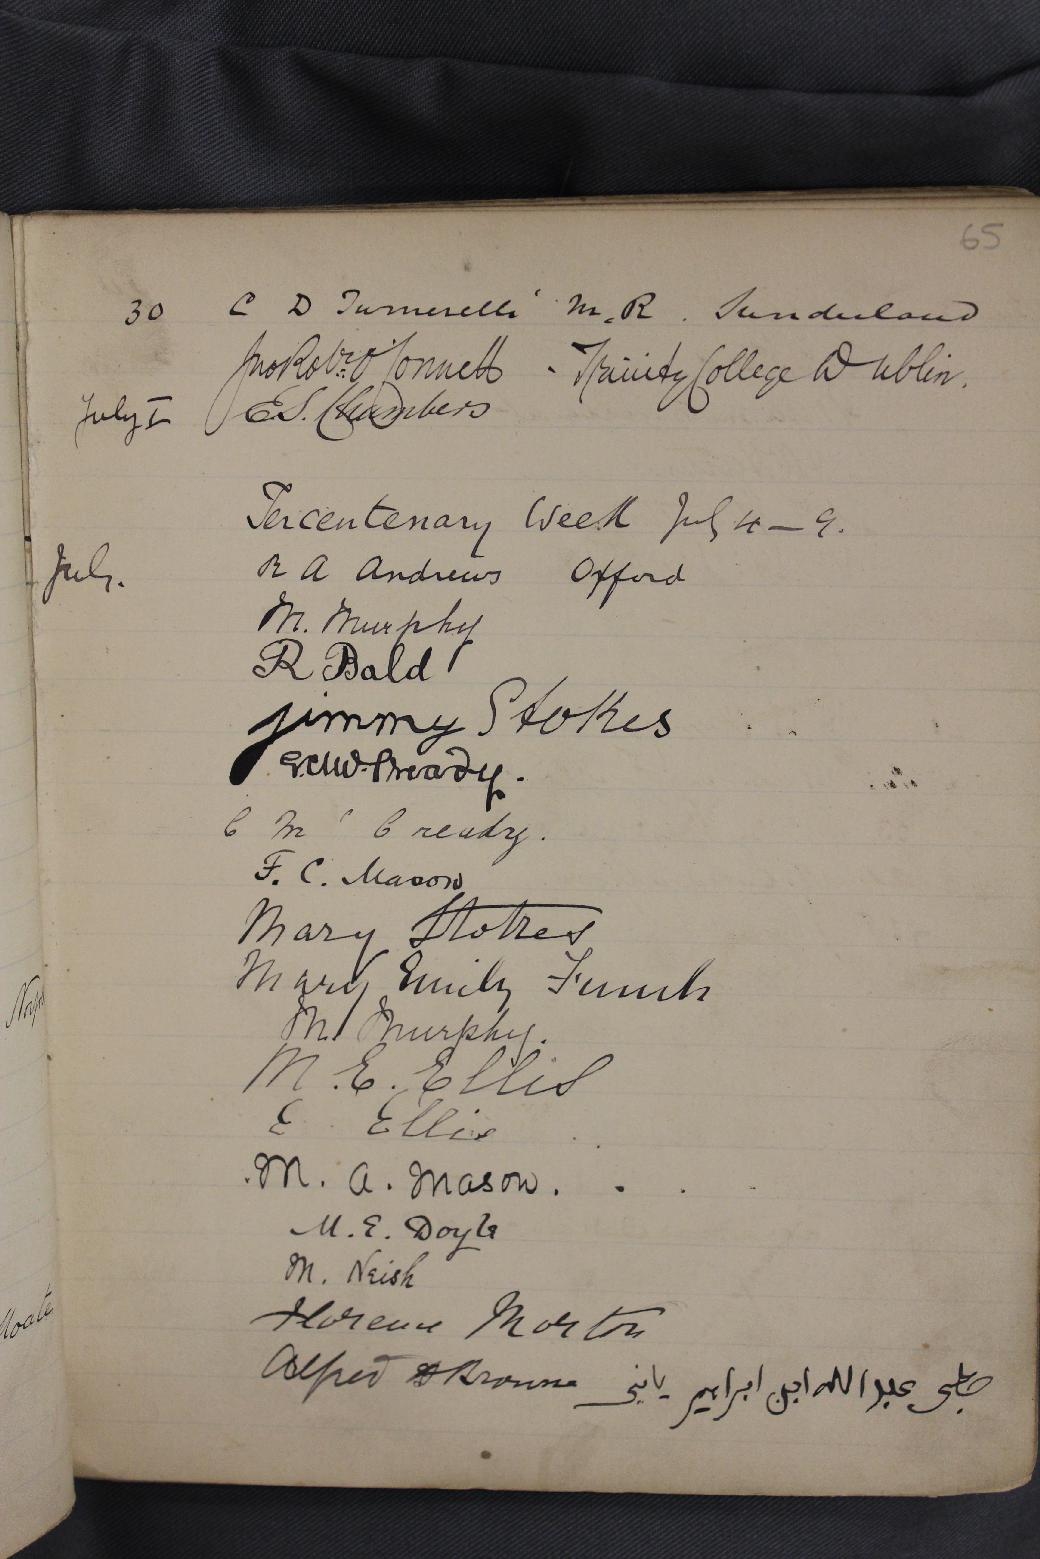 65
30 C D Turnerelli M.R. Sunderland
Jno Robt. O'Connell - Trinity College Dublin.
July 1 E.S. Chambers
Tercentenary Week July 4 - 9.
July. R A Andrews Offord
M. Murphy
R Bald
Jimmy Stokes
McCready.
C Mc Cready.
F. C. Mason
Mary Stokes
Mary Emily
M. Murphy.
M. E. Ellis
E Ellis
M. A. Mason.
M. E. Doyle
M. Neish
Florence Morton
Alfred Browne عبد الله ابن ابراهيم